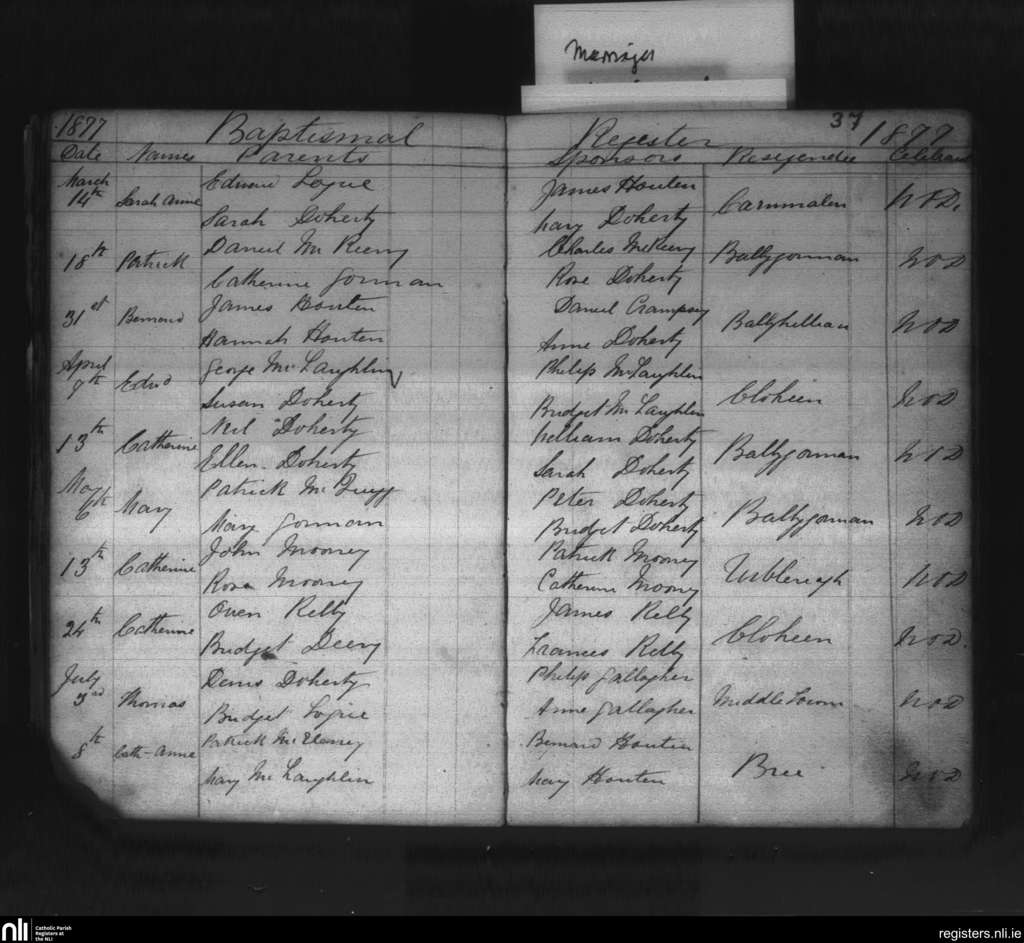 Marriages
37
1877 Baptismal Register 1877
Date Names Parents Sponsors Residence
March Edward Logue James Houten
14th Sarah Anne Carnmalin
Sarah Doherty Mary Doherty
18th Patrick Daniel Charles Ballygorman
Catherine Gorman Rose Doherty
31st Bernard James Houten Daniel Crampsey Ballyhillian
Hannah Houten Anne Doherty
April George McLaughlin Philip McLaughlin
9th Edwd Cloheen
Susan Doherty Bridget McLaughlin
13th Catherine Neil Doherty William Doherty Ballygorman
Ellen Doherty Sarah Doherty
May Patrick Peter Doherty
6th Mary Ballygorman
Mary Gorman Bridget Doherty
13th Catherine John Mooney Patrick Mooney
Rose Mooney Catherine Mooney
24th Catherine Owen Relly James Relly Cloheen
Bridget Deery Frances Relly
July Denis Doherty Philip Gallagher
3rd Thomas Middle Town
Bridget Logue Anne Gallagher
8th Cath-Anne Patrick Bernard Houten Bree
Mary McLaughlin Mary Houten
nli
Catholic Parish
Registers at
the NLI
registers.nli.ie